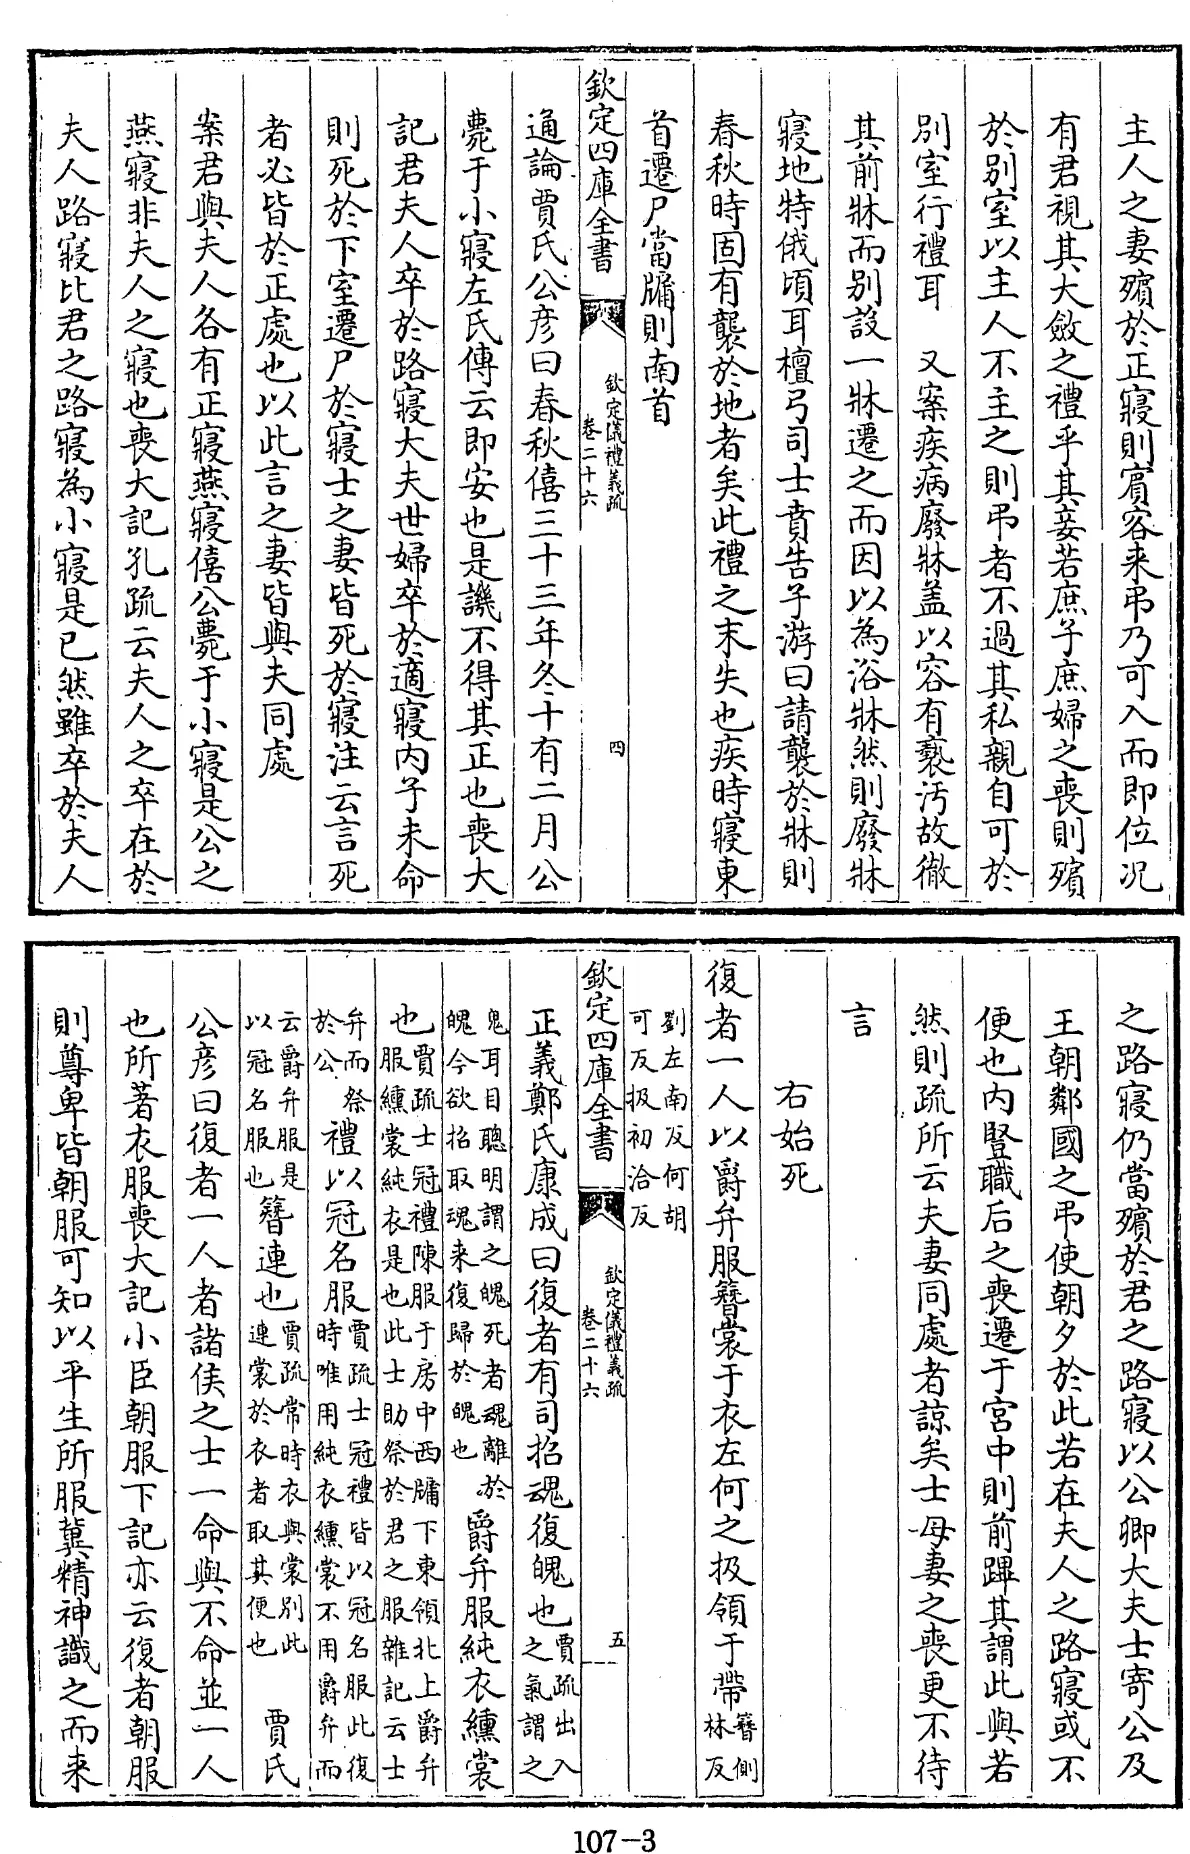 主人之妻殯於正寢則賓客来弔乃可入而即位况
有君視其大斂之禮乎其妾若庶子庶婦之喪則殯
於别室以主人不主之則弔者不過其私親自可於
别室行禮耳　又案疾病廢牀盖以容有褻汚故徹
其前牀而别設一牀遷之而因以為浴牀然則廢牀
寢地特俄頃耳檀弓司士賁告子游曰請襲於牀則
春秋時固有襲於地者矣此禮之末失也疾時寢東
首遷尸當牖則南首
欽定四庫全書
欽定儀禮義疏
卷二十六
四
通論賈氏公彦曰春秋僖三十三年冬十有二月公
薨于小寢左氏傳云即安也是譏不得其正也喪大
記君夫人卒於路寢大夫世婦卒於適寢内子未命
則死於下室遷尸於寢士之妻皆死於寢注云言死
者必皆於正處也以此言之妻皆與夫同處
案君與夫人各有正寢燕寢僖公薨于小寢是公之
燕寢非夫人之寢也喪大記孔疏云夫人之卒在於
夫人路寢比君之路寢為小寢是已然雖卒於夫人
之路寢仍當殯於君之路寢以公卿大夫士寄公及
王朝鄰國之弔使朝夕於此若在夫人之路寢或不
便也内豎職后之喪遷于宮中則前蹕其謂此與若
然則疏所云夫妻同處者諒矣士母妻之喪更不待
言
右始死
復者一人以爵弁服簪裳于衣左何之扱領于帶簪側林反
劉左南反何胡可反扱初洽反
欽定四庫全書
欽定儀禮義疏
卷二十六
五
正義鄭氏康成曰復者有司招魂復魄也賈疏出入之氣謂之
鬼耳目聰明謂之魄死者魂離於魄今欲招取魂来復歸於魄也爵弁服純衣纁裳
也賈疏士冠禮陳服于房中西牖下東領北上爵弁服纁裳純衣是也此士助祭於君之服雜記云士
弁而祭於公禮以冠名服賈疏士冠禮皆以冠名服此復時唯用純衣纁裳不用爵弁而
云爵弁服是以冠名服也簪連也賈疏常時衣與裳别此連裳於衣者取其便也　賈氏
公彦曰復者一人者諸侯之士一命與不命並一人
也所著衣服喪大記小臣朝服下記亦云復者朝服
則尊卑皆朝服可知以平生所服冀精神識之而来
107-3